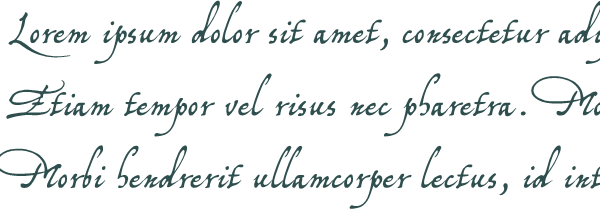 Lorem ipsum dolor sit amet, consectetur adi
Etiam tempor vel risus nec pharetra. Mo
Morbi hendrerit ullamcorper lectus, id int